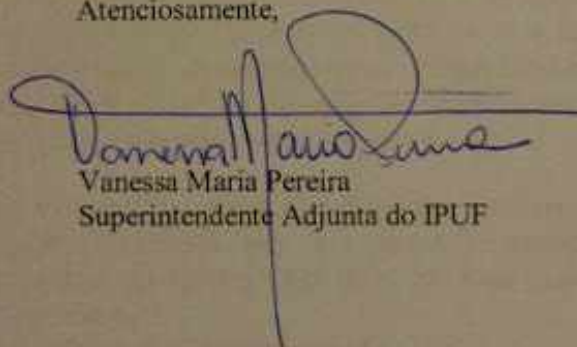 Atenciosamente,
Vanessa Maria Pereira
Vanessa Maria Pereira
Superintendente Adjunta do IPUF